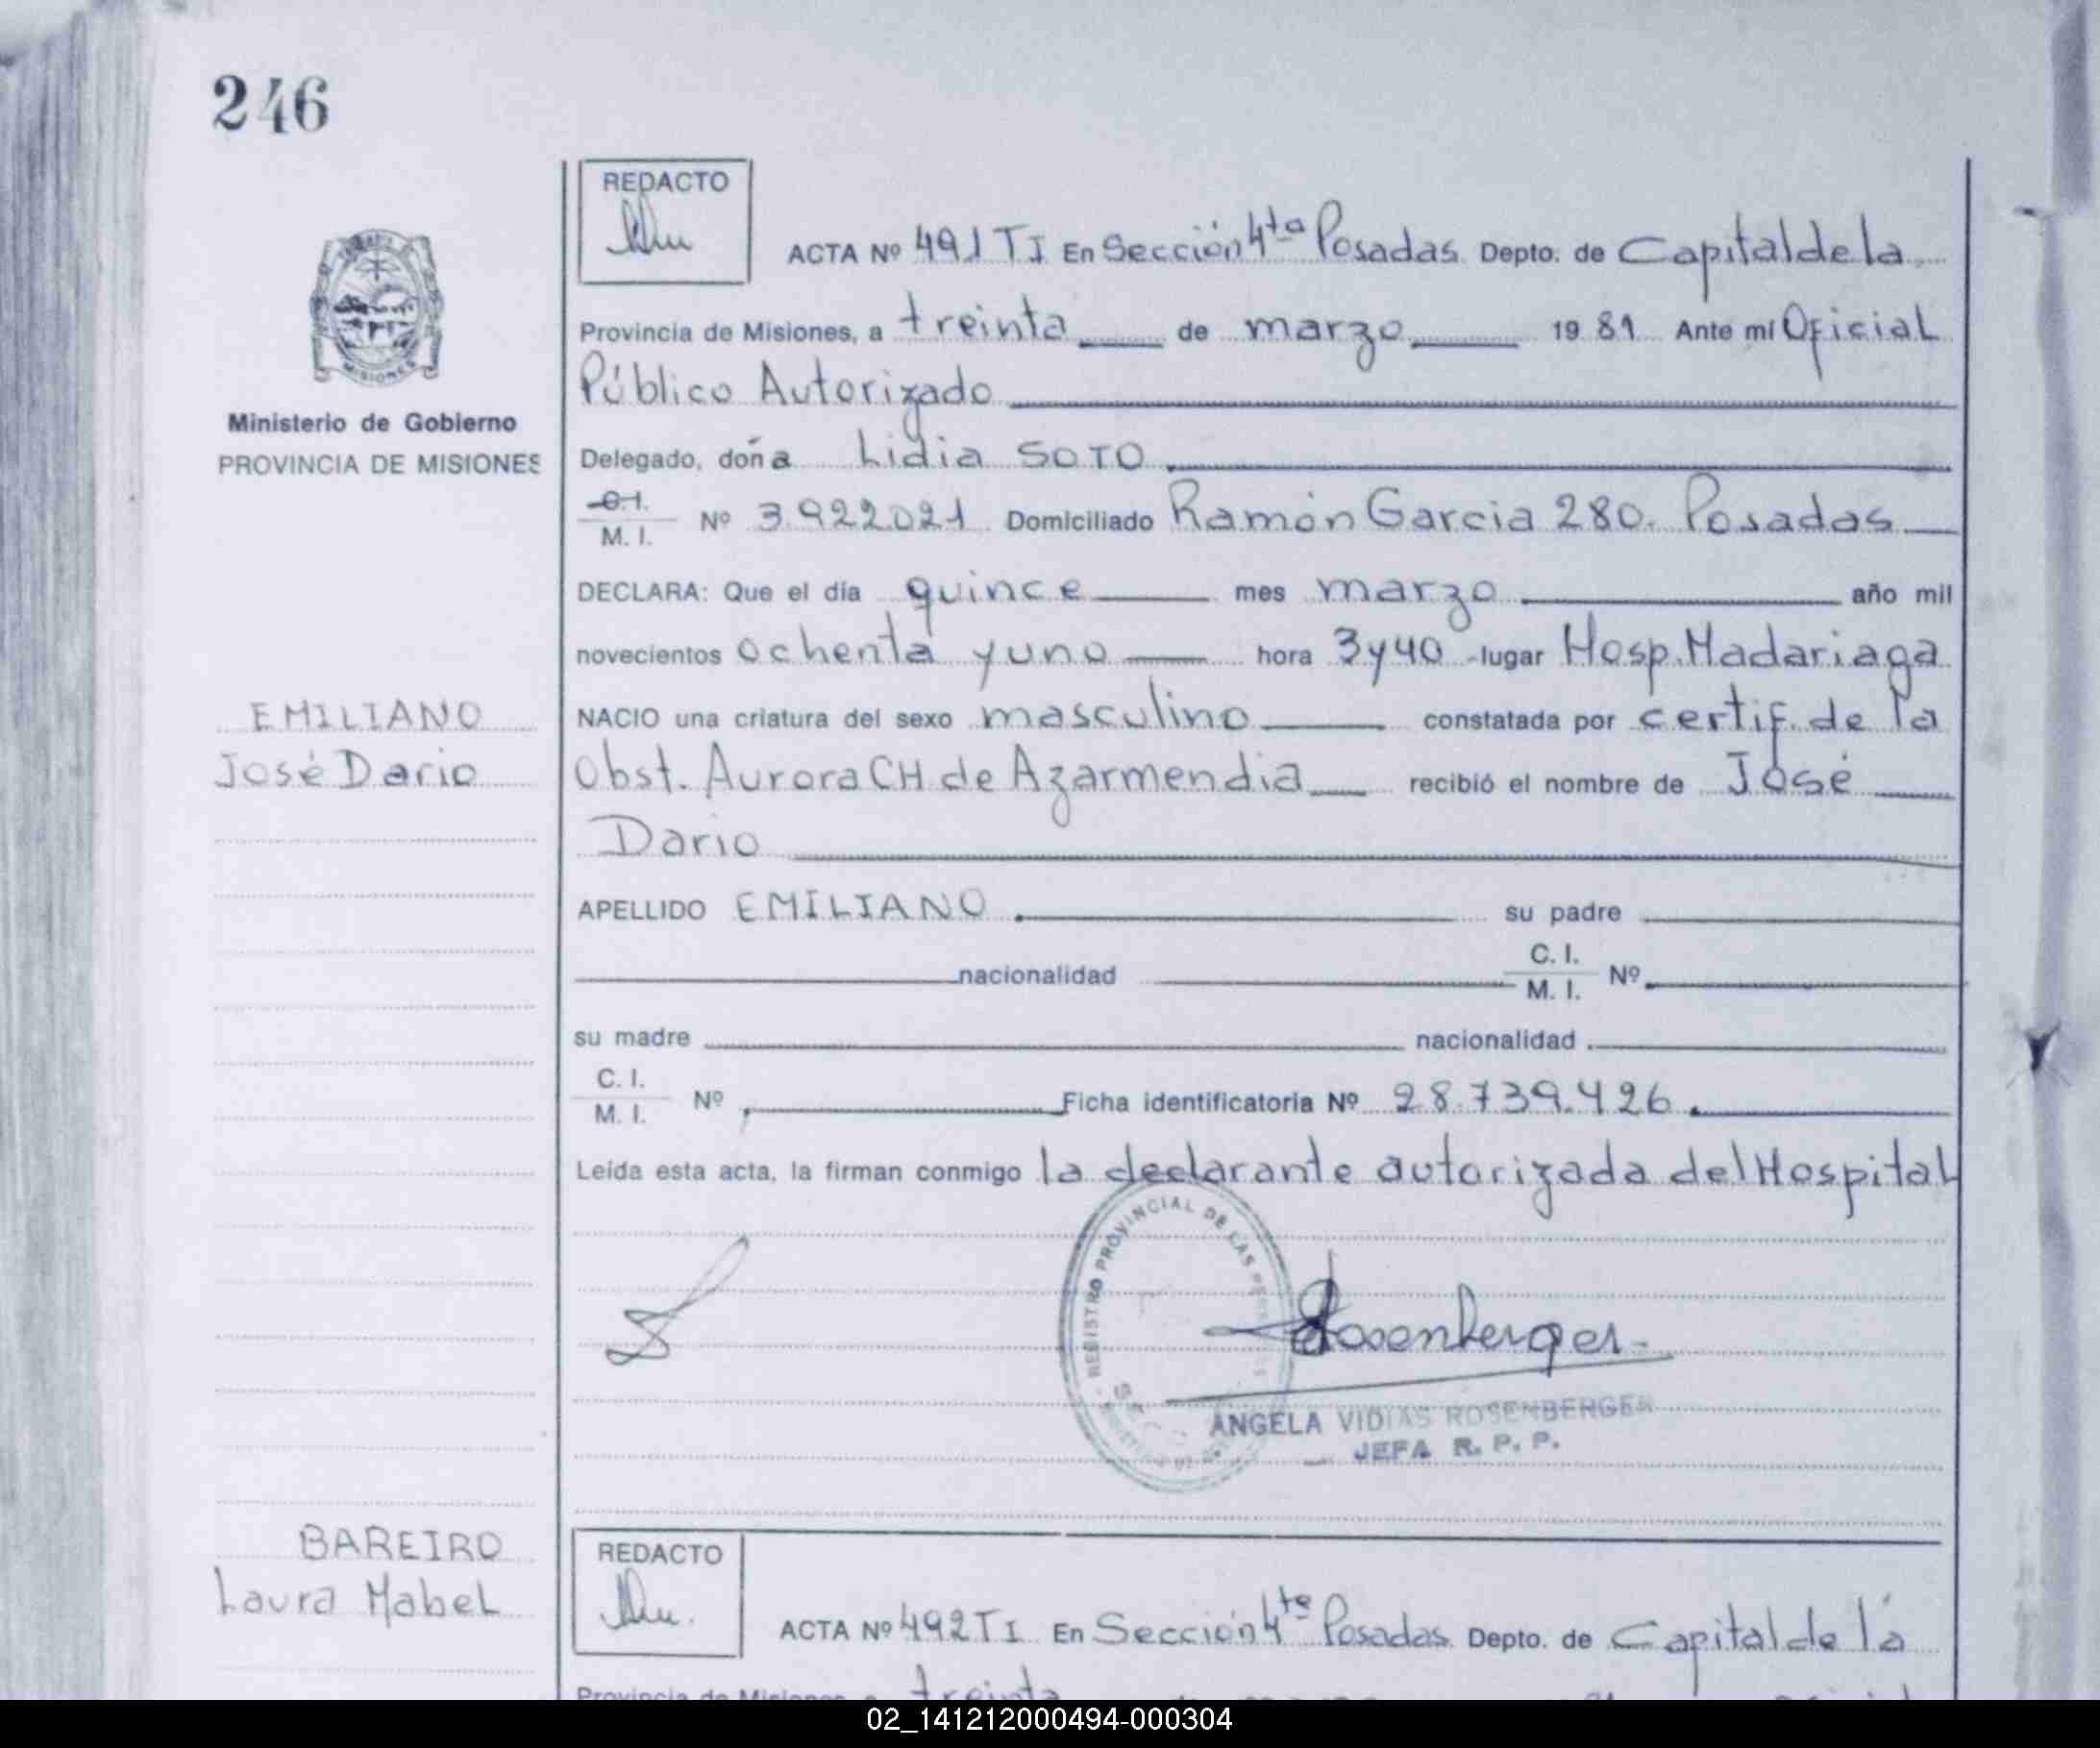 246
REDACTO
ACTA Nº 491 TI En Sección 4ta Posadas Depto. de Capital de la
Provincia de Misiones, a treinta de marzo 1981 Ante mi Oficial
Público Autorizado
Ministerio de Gobierno
PROVINCIA DE MISIONES
MISIONES
Delegado, doña Lidia SOTO
C.I.
M. I. Nº 3.922.021 Domiciliado Ramón Garcia 280. Posadas
DECLARA: Que el día quince mes marzo año mil
novecientos ochenta y uno hora 3 y 40 lugar Hosp. Madariaga
EMILIANO
José Dario
NACIO una criatura del sexo masculino constatada por certif. de la
Obst. Aurora CH de Azarmendia recibió el nombre de José
Dario
APELLIDO EMILIANO. su padre
nacionalidad C. I.
M. I. Nº
su madre nacionalidad
C. I.
M. I. Nº Ficha identificatoria Nº 28.739.426.
Leída esta acta, la firman conmigo la declarante autorizada del Hospital
REGISTRO PROVINCIAL DE LAS
Rosenberger
ANGELA VIDIAS ROSENBERGER
JEFA R. P. P.
BAREIRO
Laura Mabel
REDACTO
ACTA Nº 492 TI En Sección 4ta Posadas Depto. de Capital de la
Provincia de Misiones, a treinta
02_141212000494-000304